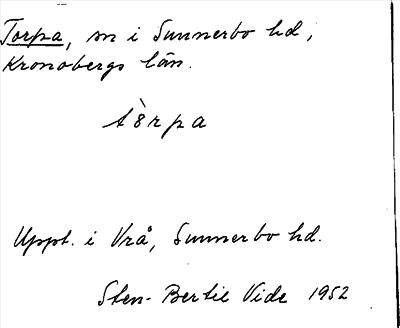 Torpa, sn i Sunnerbo hd,
Kronobergs län.
tò̀rpa
Uppt. i Vrå, Sunnerbo hd.
Sten-Bertil Vide 1952